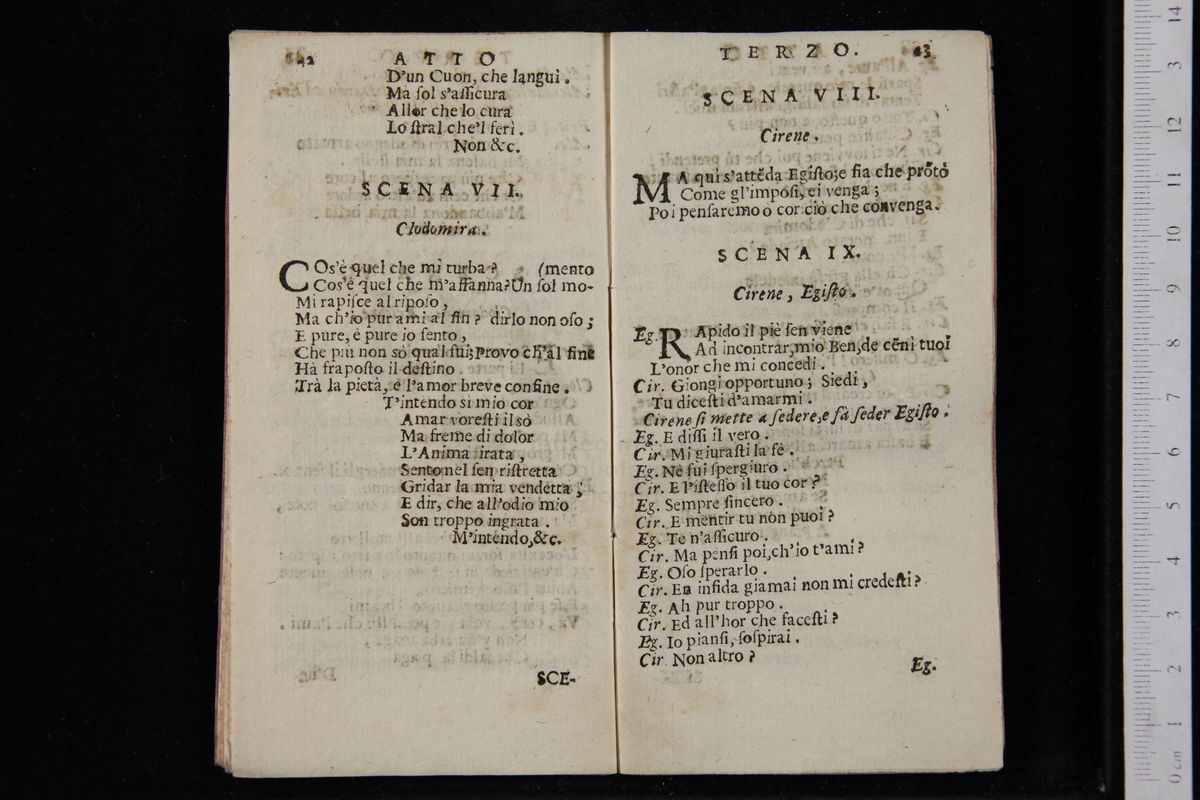 42 ATTO
D'un Cuor, che languì.
Ma ſol s'aſſicura
Allor che lo cura
Lo ſtral che'l ferì.
Non &c.
SCENA VII.
Clodomira.
COs'è quel che mi turba? (mento
Cos'è quel che m'affanna? Un ſol mo-
Mi rapiſce al ripoſo,
Ma ch'io pur ami al fin? dirlo non oſo;
E pure, è pure io ſento,
Che più non sò qual fui; Provo ch'al fine
Hà frapoſto il deſtino
Trà la pietà, e l'amor breve confine.
T'intendo si mio cor
Amar voreſti il sò
Ma freme di dolor
L'Anima irata,
Sentonel ſen riſtretta
Gridar la mia vendetta;
E dir, che all'odio mio
Son troppo ingrata.
M'intendo, &c.
SCE-
TERZO. 43
SCENA VIII.
Cirene.
MA qui s'attēda Egiſto; e ſia che prōtó
Come gl'impóſi, ei venga;
Poi penſaremo o cor ciò che convenga.
SCENA IX.
Cirene, Egiſto.
Eg. RApido il piè ſen viene
Ad incontrar, mio Ben, de cēni tuoi
L'onor che mi concedi.
Cir. Giongi opportuno; Siedi,
Tu diceſti d'amarmi.
Cirene ſi mette a ſedere, e fà ſeder Egiſto.
Eg. E diſſi il vero.
Cir. Mi giuraſti la fè.
Eg. Nè fui ſpergiuro.
Cir. E l'iſteſſo il tuo cor?
Eg. Sempre ſincero.
Cir. E mentir tu non puoi?
Eg. Te n'aſſicuro.
Cir. Ma penſi poi, ch'io t'ami?
Eg. Oſo ſperarlo.
Cir. En infida giamai non mi credeſti?
Eg. Ah pur troppo.
Cir. Ed all'hor che faceſti?
Eg. Io pianſi, ſoſpirai.
Cir Non altro?
Eg.